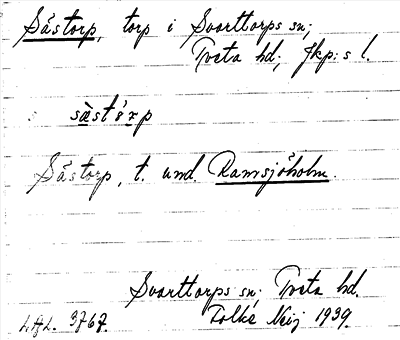 Såstorp, torp i Svarttorps sn;
Tveta hd; Jkp:s l.
såstårp
Såstorp, t. und. Ramsjöholm.
Svarttorps sn; Tveta hd.
3767. Tolke Neij 1939.